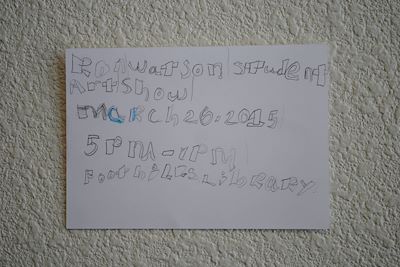 Ron Watson Student
Art Show
March 26. 2015
5PM-7PM
Foothills Library